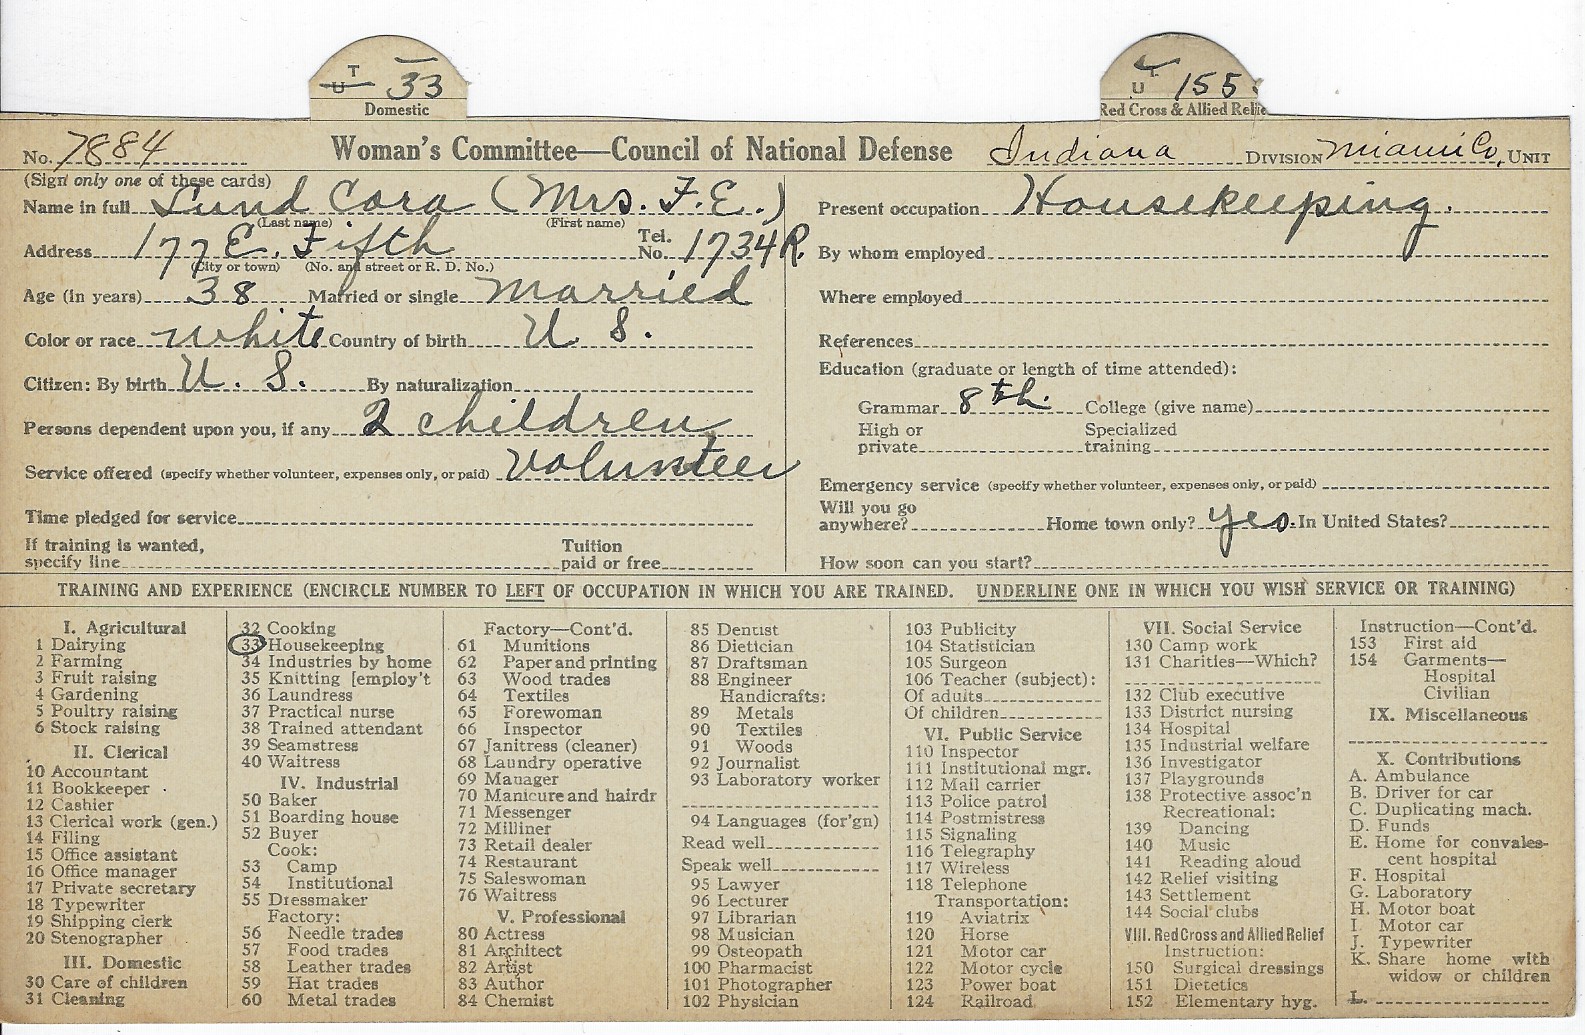 T
U 33
Domestic
T
U 155
Red Cross & Allied Relie
No. 7884 Woman's Committee—Council of National Defense Indiana DIVISION Miami Co. UNIT
(Sign only one of these cards)
Name in full Lund Cora (Mrs. F.E.)
(Last name) (First name)
Address 177 E. Fifth Tel. No. 1734 R.
(City or town) (No. and street or R. D. No.)
Age (in years) 38 Married or single Married
Color or race white Country of birth U. S.
Citizen: By birth U. S. By naturalization
Persons dependent upon you, if any 2 children
Service offered (specify whether volunteer, expenses only, or paid) Volunteer
Time pledged for service
If training is wanted, specify line Tuition paid or free
Present occupation Housekeeping.
By whom employed
Where employed
References
Education (graduate or length of time attended):
Grammar 8th. College (give name)
High or private Specialized training
Emergency service (specify whether volunteer, expenses only, or paid)
Will you go anywhere? Home town only? yes. In United States?
How soon can you start?
TRAINING AND EXPERIENCE (ENCIRCLE NUMBER TO LEFT OF OCCUPATION IN WHICH YOU ARE TRAINED. UNDERLINE ONE IN WHICH YOU WISH SERVICE OR TRAINING)
I. Agricultural
1 Dairying
2 Farming
3 Fruit raising
4 Gardening
5 Poultry raising
6 Stock raising
II. Clerical
10 Accountant
11 Bookkeeper
12 Cashier
13 Clerical work (gen.)
14 Filing
15 Office assistant
16 Office manager
17 Private secretary
18 Typewriter
19 Shipping clerk
20 Stenographer
III. Domestic
30 Care of children
31 Cleaning
32 Cooking
33 Housekeeping
34 Industries by home
35 Knitting [employ't
36 Laundress
37 Practical nurse
38 Trained attendant
39 Seamstress
40 Waitress
IV. Industrial
50 Baker
51 Boarding house
52 Buyer
Cook:
53 Camp
54 Institutional
55 Dressmaker
Factory:
56 Needle trades
57 Food trades
58 Leather trades
59 Hat trades
60 Metal trades
Factory—Cont'd.
61 Munitions
62 Paper and printing
63 Wood trades
64 Textiles
65 Forewoman
66 Inspector
67 Janitress (cleaner)
68 Laundry operative
69 Manager
70 Manicure and hairdr
71 Messenger
72 Milliner
73 Retail dealer
74 Restaurant
75 Saleswoman
76 Waitress
V. Professional
80 Actress
81 Architect
82 Artist
83 Author
84 Chemist
85 Dentist
86 Dietician
87 Draftsman
88 Engineer
Handicrafts:
89 Metals
90 Textiles
91 Woods
92 Journalist
93 Laboratory worker
94 Languages (for'gn)
Read well
Speak well
95 Lawyer
96 Lecturer
97 Librarian
98 Musician
99 Osteopath
100 Pharmacist
101 Photographer
102 Physician
103 Publicity
104 Statistician
105 Surgeon
106 Teacher (subject):
Of adults
Of children
VI. Public Service
110 Inspector
111 Institutional mgr.
112 Mail carrier
113 Police patrol
114 Postmistress
115 Signaling
116 Telegraphy
117 Wireless
118 Telephone
Transportation:
119 Aviatrix
120 Horse
121 Motor car
122 Motor cycle
123 Power boat
124 Railroad
VII. Social Service
130 Camp work
131 Charities—Which?
132 Club executive
133 District nursing
134 Hospital
135 Industrial welfare
136 Investigator
137 Playgrounds
138 Protective assoc'n
Recreational:
139 Dancing
140 Music
141 Reading aloud
142 Relief visiting
143 Settlement
144 Social clubs
VIII. Red Cross and Allied Relief
Instruction:
150 Surgical dressings
151 Dietetics
152 Elementary hyg.
Instruction—Cont'd.
153 First aid
154 Garments—
Hospital
Civilian
IX. Miscellaneous
X. Contributions
A. Ambulance
B. Driver for car
C. Duplicating mach.
D. Funds
E. Home for convales-
cent hospital
F. Hospital
G. Laboratory
H. Motor boat
I. Motor car
J. Typewriter
K. Share home with
widow or children
L.